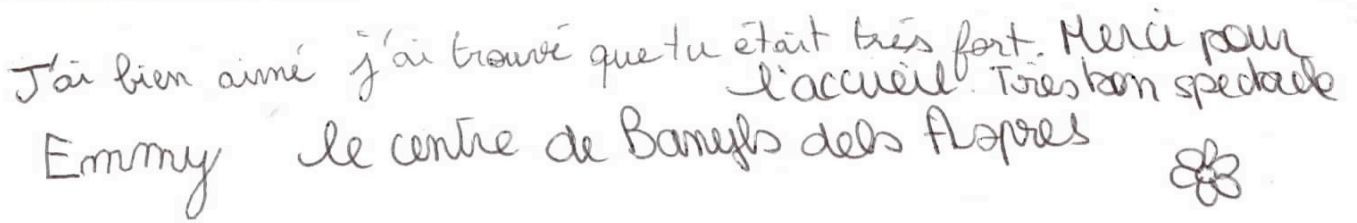 J'ai bien aimé j'ai trouvé que tu était très fort. Merci pour
l'accueil. Très bon spectacle
Emmy le centre de Banyls dels Aspres